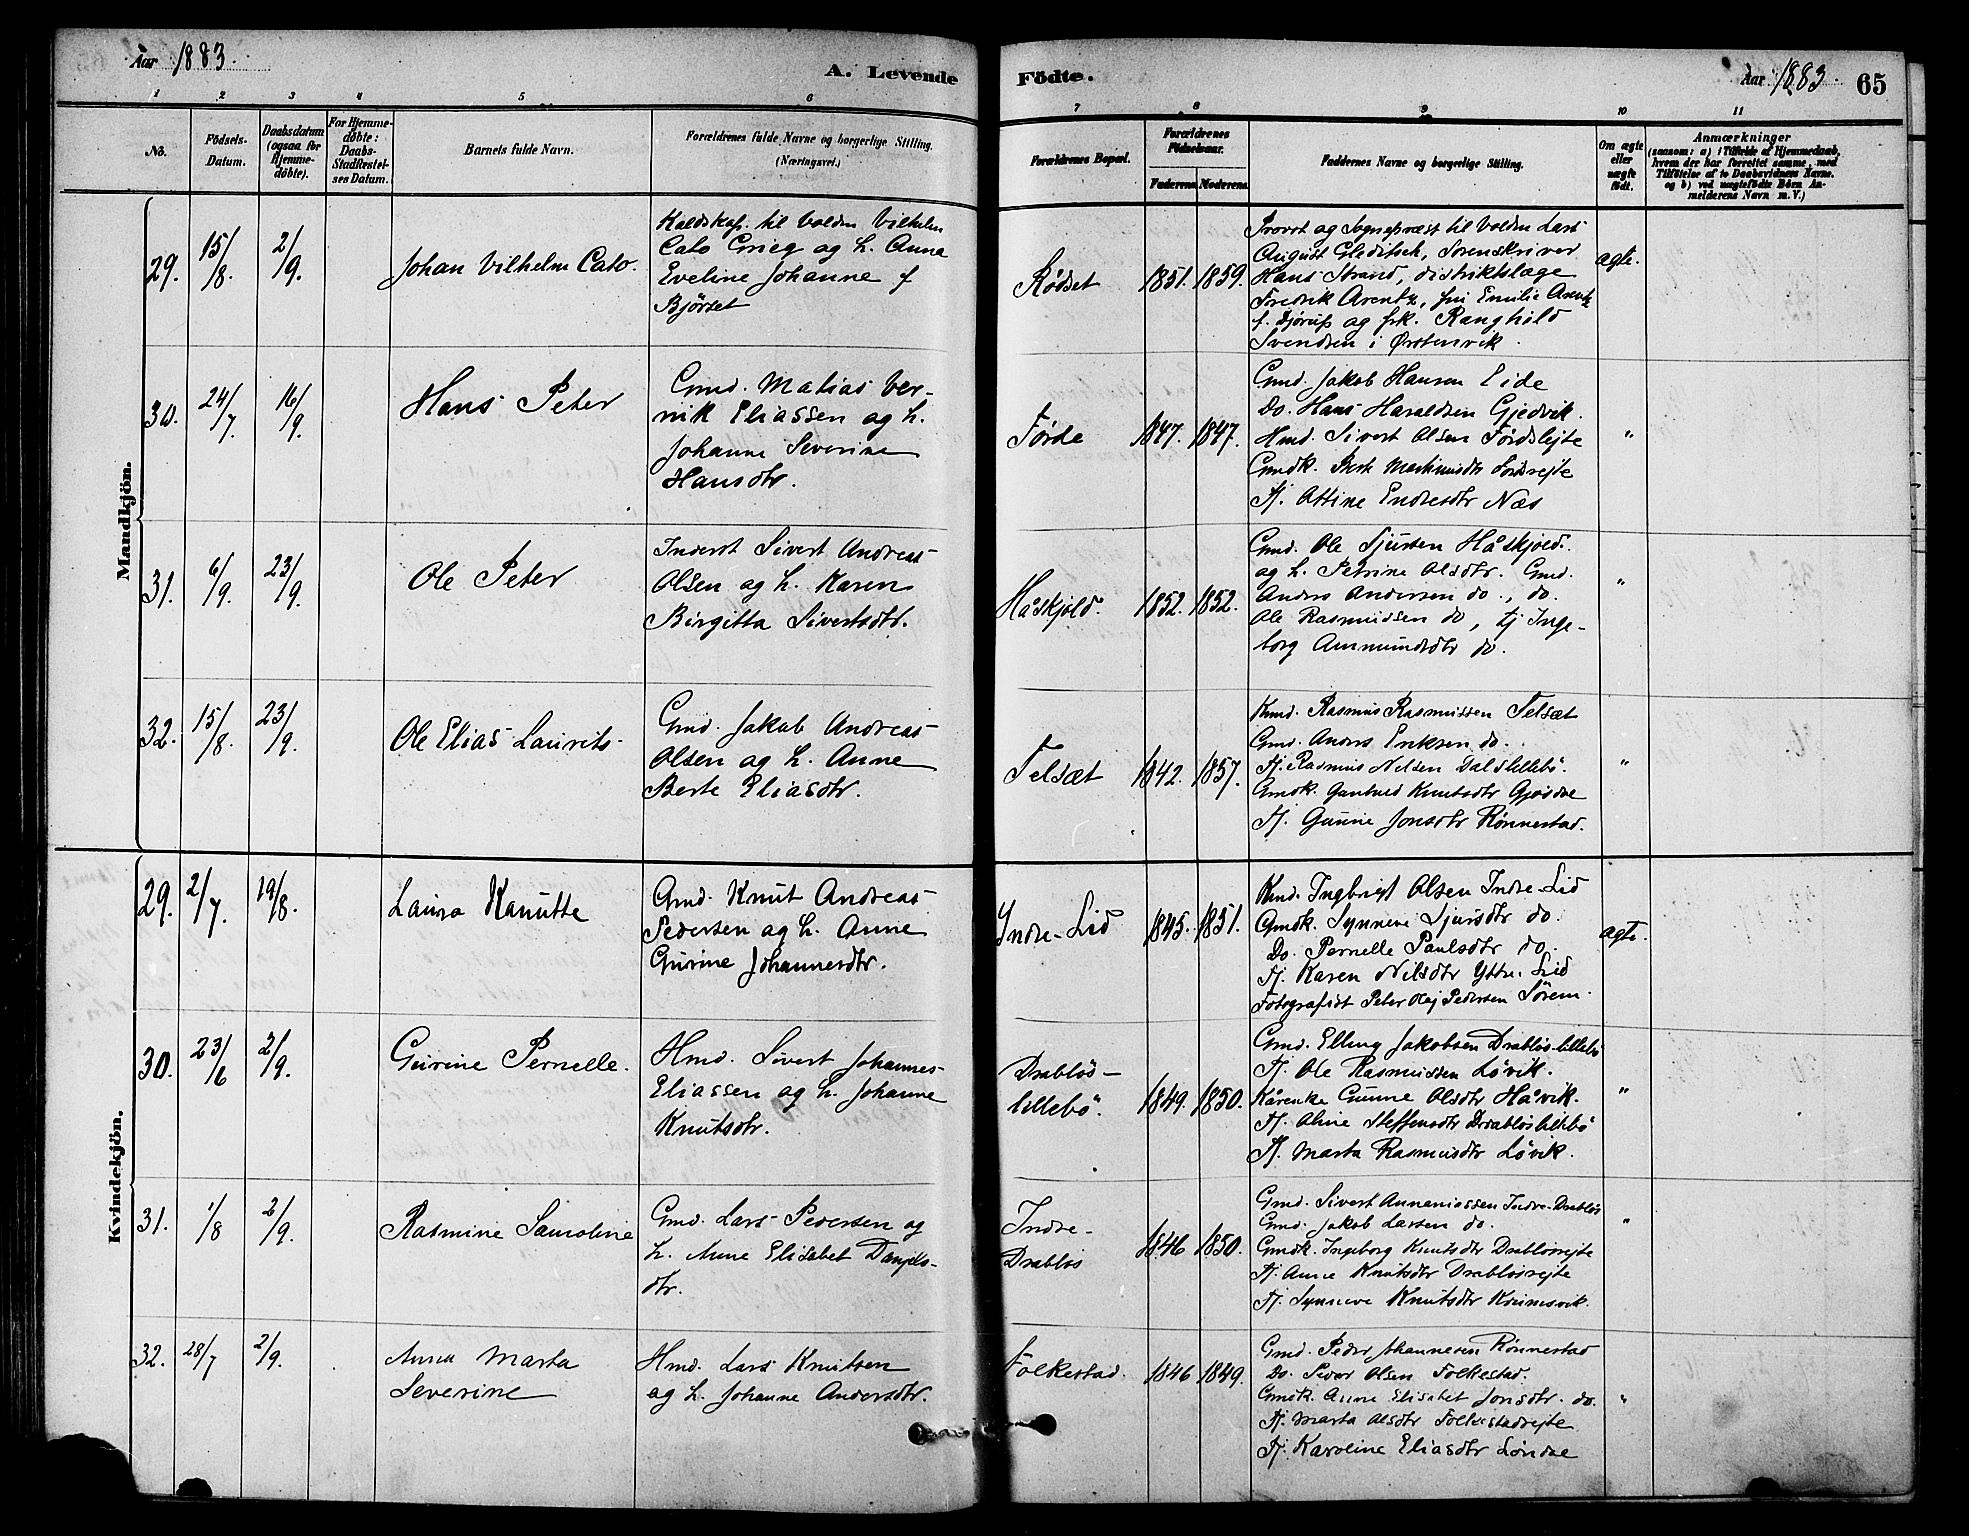 Aar 1883.
A. Levende
Födte.
Aar 1883.
65
1 2 3 4 5 6
7 8 9 10 11
No.
Födsels-
Datum.
Daabsdatum
(ogsaa for
Hjemme-
döbte).
For Hjemme-
döbte:
Daabs-
Stadfæstel-
ses Datum.
Barnets fulde Navn.
Forældrenes fulde Navne og borgerlige Stilling.
(Næringsvei.)
Forældrenes Bopæl.
Forældrenes
Födselsaar.
Faderens
Moderens
Faddernes Navne og borgerlige Stilling.
Om ægte
eller
uægte
födt.
Anmærkninger
(saasom: a) i Tilfælde af Hjemmedaab,
hvem der har forrettet samme, med
Tilföielse af to Daabsvidners Navne.
og b) ved uægtefödte Börn An-
melderens Navn m. V.)
Mandkjön.
29.
15/8.
2/9.
Johan Vilhelm Cato.
til Volden Vilhelm
Cato Grieg og h. Anna
Eveline Johanne f
Bjørset
Rødset
1851.
1859.
Provst og Sognepræst til Volden Lars
August Gleditsch, Sorenskriver
Hans Strand, distriktslæge
Fredrik Arentz, fru Emilie Arentz
f. og frk. Ranghild
Svendsen i Ørstenvik.
ægte.
30.
24/7.
16/9.
Hans Peter
Gmd. Matias Ver-
nik Eliassen og h.
Johanne Severine
Hansdtr.
Førde
1847.
1847.
Gmd. Jakob Hansen Eide
Do. Hans Haraldsen Gjedvik.
Hmd. Sivert Olsen
Gmdk. Berte
Tj. Attine Endresdtr Næs
"
31.
6/9.
23/9.
Ole Peter
Inderst Sivert Andreas
Olsen og h. Karen
Birgitta Sivertsdtr.
Håskjold.
1852.
1852.
Gmd. Ole Sjursen Håskjold.
og h. Petrine Olsdtr. Gmd.
Anders Andersen do., do.
Ole Rasmussen do, tj Inge-
borg Ammundsdtr do.
"
32.
15/8.
23/9.
Ole Elias Laurits
Gmd. Jakob Andreas
Olsen og h. Anne
Berte Eliasdtr.
Telsæt
1842.
1857.
Kmd. Rasmus Rasmussen Telsæt
Gmd. Anders Eriksen do.
Tj. Rasmus Nilsen Dalslillebö.
Gmdk. Knutsdtr
Tj. Gunne Jonsdtr Rönnestad.
"
Kvindekjön.
29.
2/7.
19/8.
Laura Kanutte
Gmd. Knut Andreas
Pedersen og h. Anne
Gurine Johannesdtr.
Indre-Lid
1845.
1851.
Kmd. Ingbrigt Olsen Indre-Lid
Gmdk. Synneve Sjursdtr do.
Do. Pernelle Paulsdtr do.
Tj. Karen Nilsdtr Ytre-Lid
Fotografist Peter Olaj Pedersen Sörem.
ægte.
30.
23/6
2/9.
Gurine Pernelle.
Hmd. Sivert Johannes
Eliassen og h. Johanne
Knutsdtr.
Drabløs-
lillebö.
1849.
1850.
Gmd. Elling Jakobsen Drabløslillebö
Tj. Ole Rasmussen Løvik.
Kårenke Gunne Olsdtr Håvik.
Tj. Oline Steffensdtr Drabløslillebö
Tj. Marta Rasmusdtr Løvik.
"
31.
1/8
2/9.
Rasmine Samoline
Gmd. Lars Pedersen og
h. Anne Elisabet Daniels-
dtr.
Indre-
Drabløs
1846
1850.
Gmd. Sivert Annaniassen Indre-Drabløs
Gmd. Jakob Larsen do.
Gmdk. Ingeborg Knutsdtr Drabløsrejte
Tj. Anne Knutsdtr Drabløsrejte
Tj. Synneve Knutsdtr
"
32.
28/7
2/9.
Anna Marta
Severine
Hmd. Lars Knutsen
og h. Johanne Andersdtr.
Folkestad.
1846
1849.
Gmd. Peder Johannesen Rönnestad
Do. Siver Olsen Folkestad.
Gmdk. Anne Elisabet Jonsdtr. do.
Tj. Marta Olsdtr Folkestadrejte
Tj. Karoline Eliasdtr
"